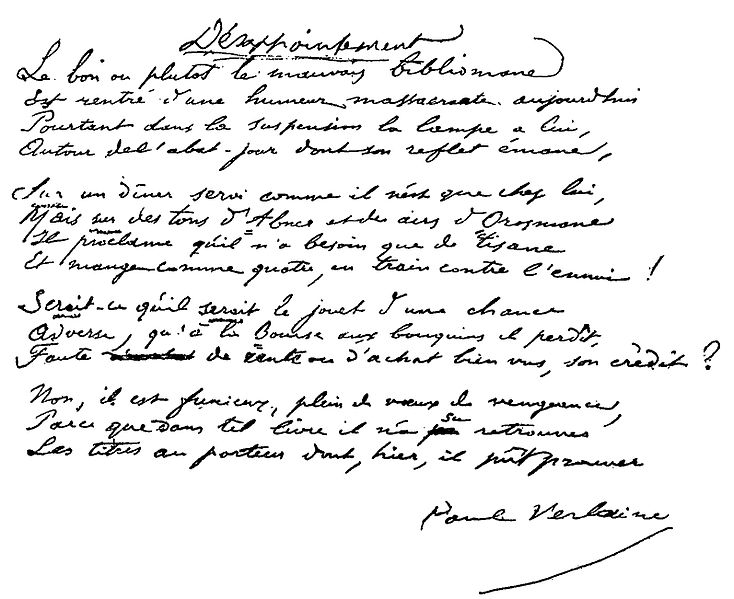 Désappointement
Le bon ou plutôt le mauvais bibliomane
Est rentré d'une humeur massacrante aujourd'hui
Pourtant dans la suspension la lampe a lui,
Autour de l'abat-jour dont son reflet émane,
Sur un dîner servi comme il n'est que chez lui,
Mais sur des tons d'Alceste et des airs d'Orosmane
Il proclame qu'il n'a besoin que de tisane
Et mange comme quatre, en train contre l'ennui !
Serait-ce qu'il serait le jouet d'une chance
Adverse, qu'à la Bourse aux bouquins il perdît,
Faute de vente ou d'achat bien vus, son crédit ?
Non, il est furieux, plein de vœux de vengeance,
Parce que dans tel livre il n'a su retrouver
Les titres au porteur dont, hier, il pût prouver
Paul Verlaine